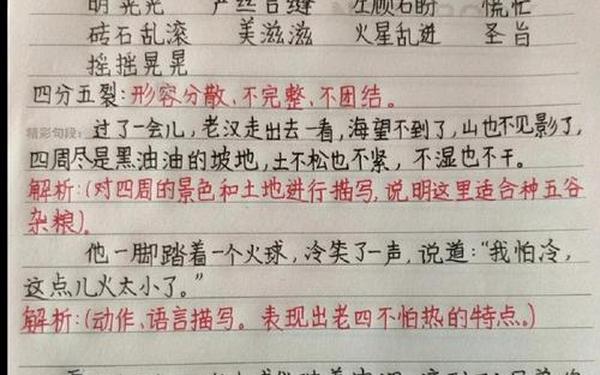 明晃晃 严丝合缝 左顾右盼 慌忙
砖石乱滚 美滋滋 火星乱迸 圣旨
摇摇晃晃
四分五裂:形容分散、不完整、不团结。
精彩句段:过了一会儿,老汉走出去一看,海望不到了,山也不见影了,
四周尽是黑油油的坡地,土不松也不紧,不湿也不干。
解析:(对四周的景色和土地进行描写,说明这里适合种五谷
杂粮)。
他一脚踏着一个火球,冷笑了一声,说道:“我怕冷,
这点儿火太小了。”
解析:(动作、语言描写。表现出老四不怕热的特点。)